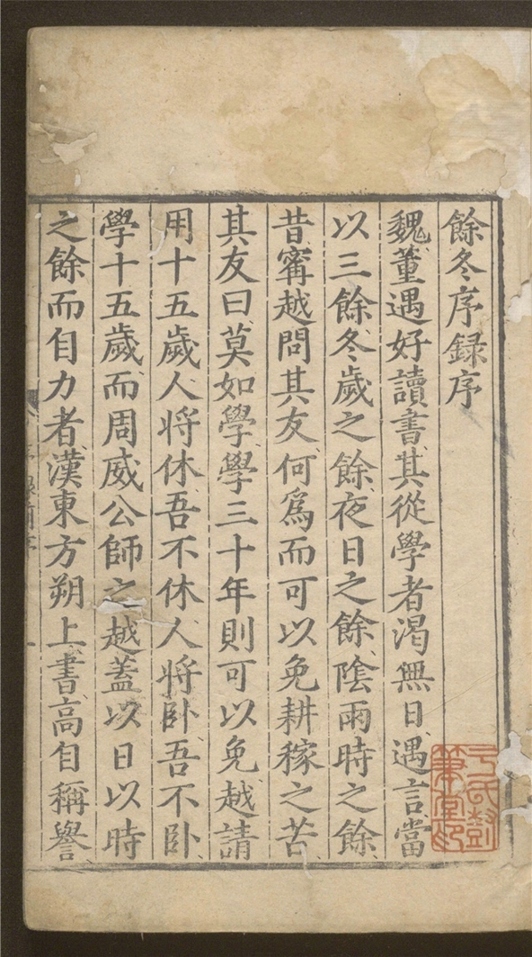 餘冬序録序
魏董遇好讀書其從學者渴無日遇言當
以三餘冬歲之餘夜日之餘陰雨時之餘
昔甯越問其友何爲而可以免耕稼之苦
其友曰莫如學學三十年則可以免越請
用十五歲人将休吾不休人将卧吾不卧
學十五歲而周威公師之越蓋以日以時
之餘而自力者漢東方朔上書高自稱譽